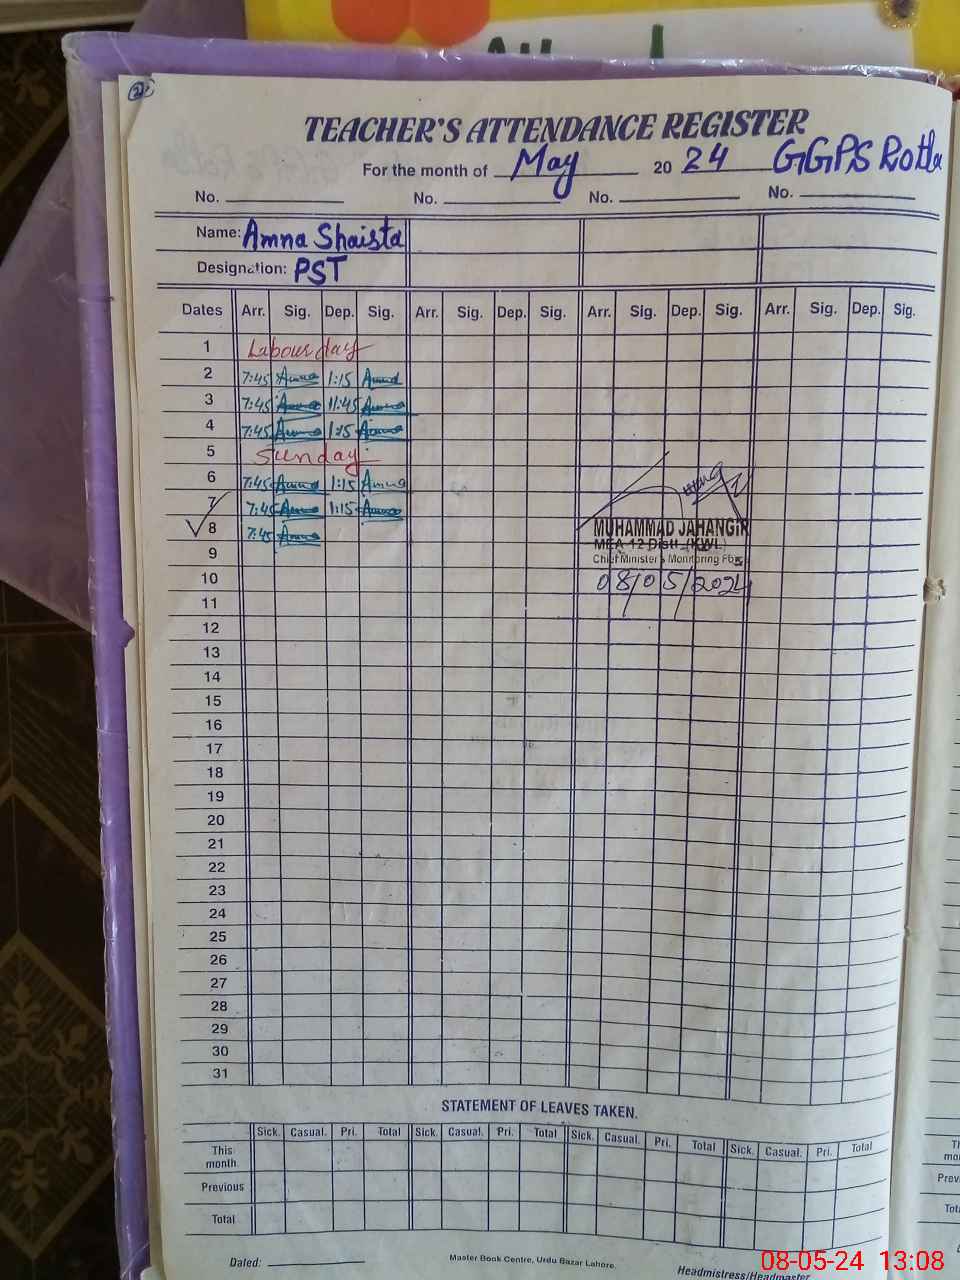 2
TEACHER'S ATTENDANCE REGISTER
For the month of May 2024 GGPS Rotla
No. No. No. No.
Name: Amna Shaista
Designation: PST
Dates Arr. Sig. Dep. Sig. Arr. Sig. Dep. Sig. Arr. Sig. Dep. Sig. Arr. Sig. Dep. Sig.
1 Labour day
2 7:45 Amna 1:15 Amna
3 7:45 Amna 11:45 Amna
4 7:45 Amna 1:15 Amna
5 Sunday
6 7:45 Amna 1:15 Amna
7 7:45 Amna 1:15 Amna
8 7:45 Amna
MUHAMMAD JAHANGIR
MEA-12 Distt. (KWL)
Chief Minister's Monitoring Force
9
10 08/05/2024
11
12
13
14
15
16
17
18
19
20
21
22
23
24
25
26
27
28
29
30
31
STATEMENT OF LEAVES TAKEN.
Sick. Casual. Pri. Total Sick. Casual. Pri. Total Sick. Casual. Pri. Total Sick. Casual. Pri. Total
This month
Previous
Total
Dated: Master Book Centre, Urdu Bazar Lahore. Headmistress/Headmaster
08-05-24 13:08